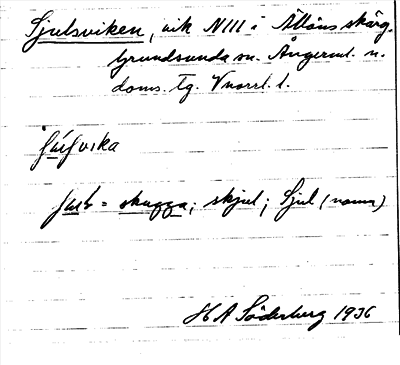 Sjulsviken, vik N III i Ällöns skärg.
Grundsunda sn. Ångerml. n.
doms. tg. Vnorrl. l.
vika
= skugga; skjul; Sjul (namn)
H A Söderberg 1936